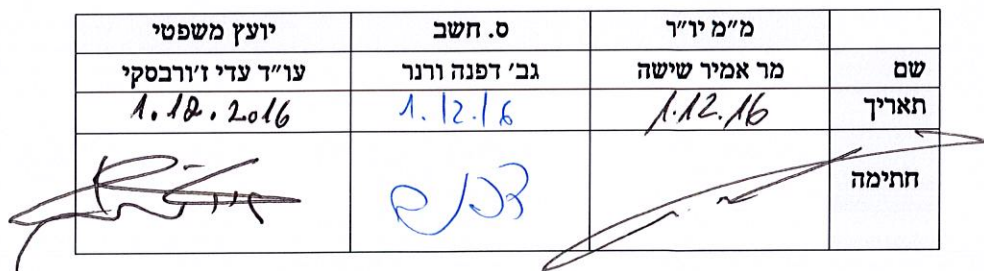 מ״מ יו״ר ס. חשב יועץ משפטי
שם מר אמיר שישה גב׳ דפנה ורנר עו״ד עדי ז׳ורבסקי
תאריך 1.12.16 1.12.16 1.12.2016
חתימה